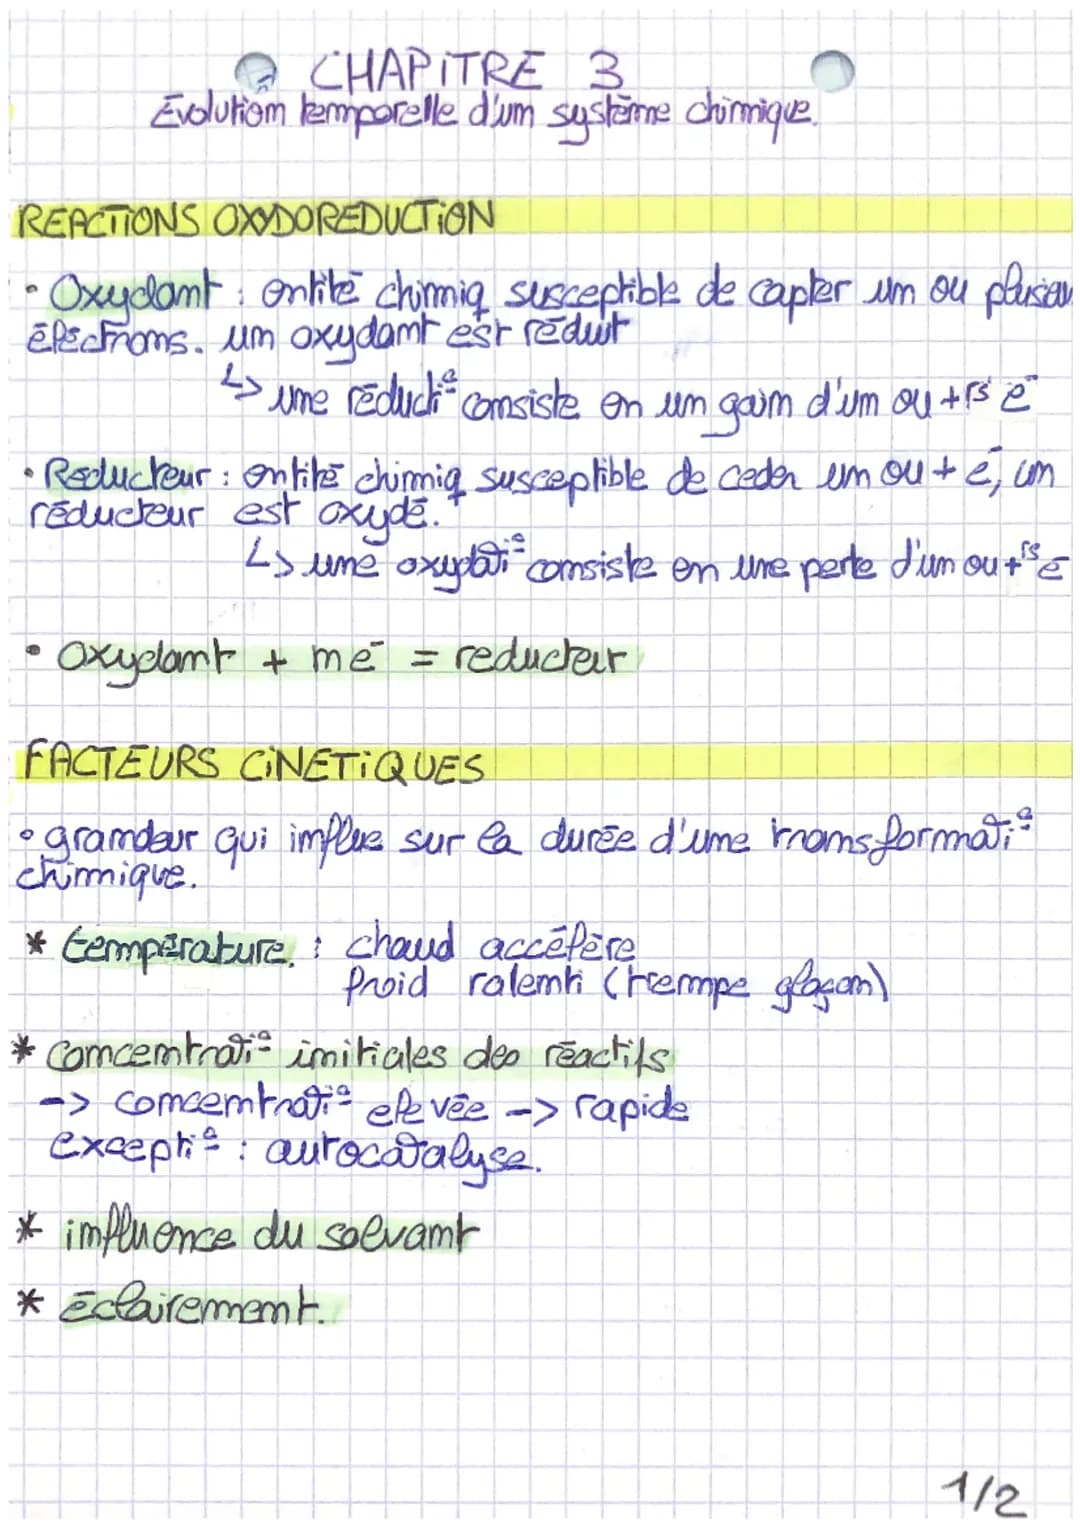 CHAPITRE 3
Evolution temporelle d'un système chimique.
REACTIONS OXYDOREDUCTION
• Oxydant : entité chimiq susceptible de capter un ou plusieu
électrons. un oxydant est réduit
↳ une réductiº consiste en un gain d'un ou +rs e-
• Reducteur : entité chimiq susceptible de ceder un ou + e-, un
réducteur est oxydé.
↳ une oxydatiº consiste en une perte d'un ou +rs e-
• Oxydant + ne- = reducteur
FACTEURS CINETIQUES
• grandeur qui influe sur la durée d'une transformatiº
chimique.
* température. : chaud accélère
froid ralenti (trempe glaçon)
* Concentratiº initiales des réactifs
-> concentratiº elevée -> rapide
exceptiº : autocatalyse.
* influence du solvant
* Éclairement.
1/2